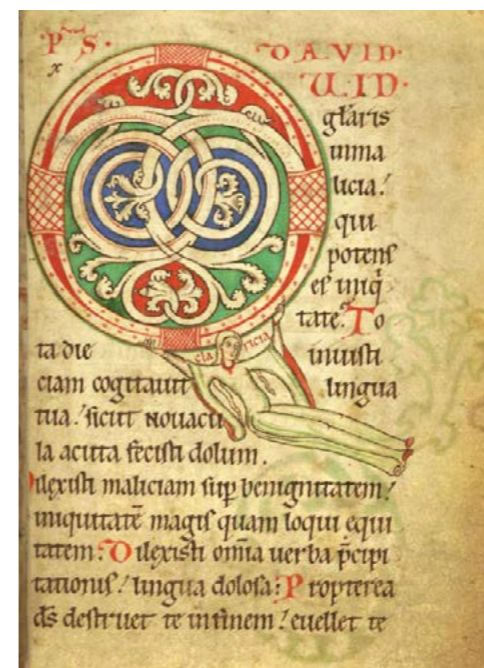 PS. DAVID.
x
UID.
głaris
inma
licia!
qui
potens
es iniq
tate. To
CLA RICIA
ta die
iniusti
ciam cogitauit
lingua
tua! sicut nouacu
la acuta fecisti dolum.
Dilexisti maliciam sup benignitatem!
iniquitatē magis quam loqui equi
tatem: Dilexisti om̄ia uerba p̄cipi
tationis! lingua dolosa: Propterea
ds̄ destruet te infinem! euellet te